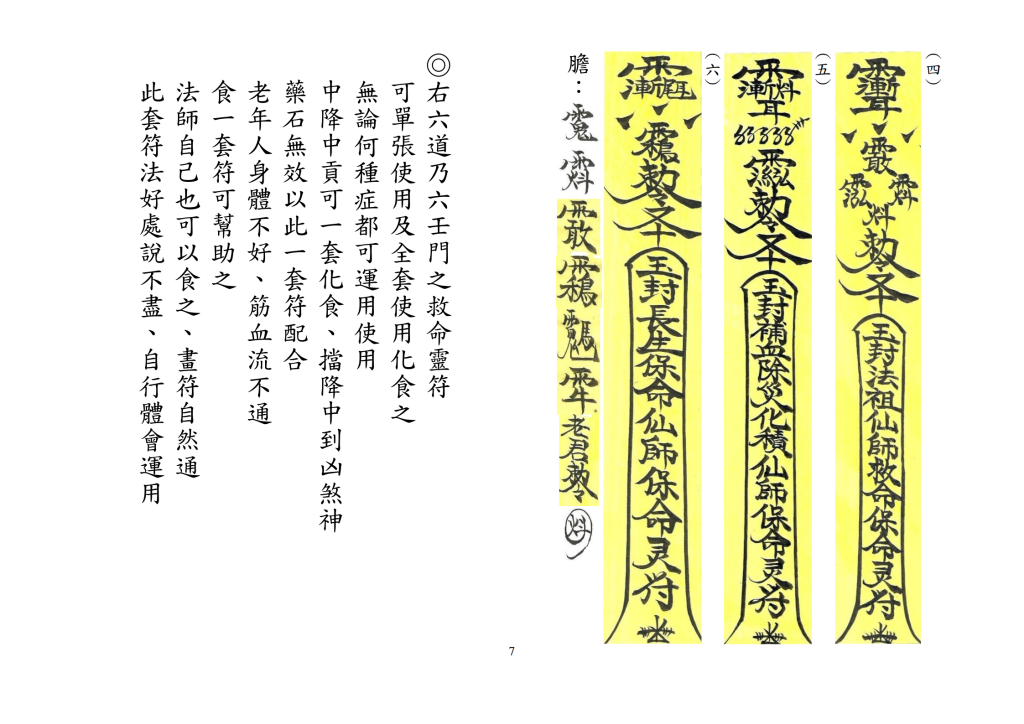 （四）
勅令
玉封法祖仙師救命保命灵符
（五）
勅令
玉封補血除災化積仙師保命灵符
（六）
勅令
玉封長生保命仙師保命灵符
膽：
老君勅令
◎右六道乃六壬門之救命靈符
可單張使用及全套使用化食之
無論何種症都可運用使用
中降中貢可一套化食、擋降中到凶煞神
藥石無效以此一套符配合
老年人身體不好、筋血流不通
食一套符可幫助之
法師自己也可以食之、畫符自然通
此套符法好處說不盡、自行體會運用
7